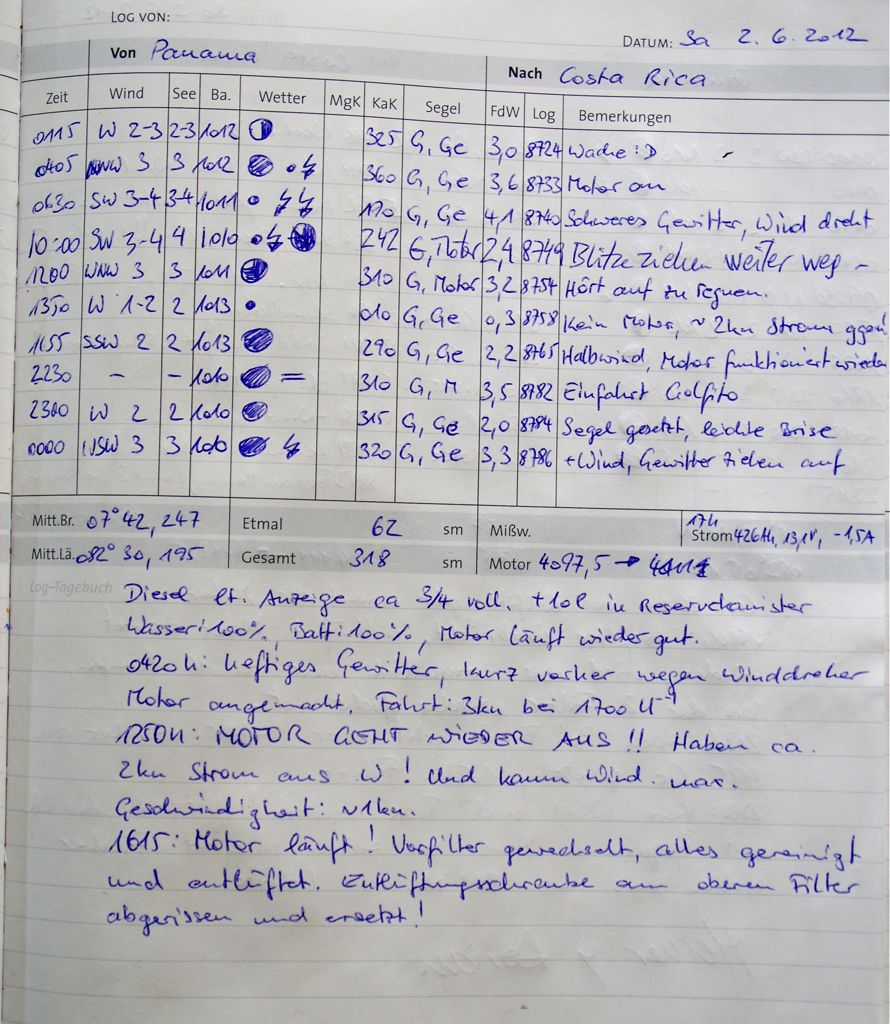 LOG VON:
DATUM: Sa 2.6.2012
Von Panama
Nach Costa Rica
Zeit Wind See Ba. Wetter MgK KaK Segel FdW Log Bemerkungen
0115 W 2-3 2-3 1012 325 G, Ge 3,0 8724 Wache :D
0405 WNW 3 3 1012 360 G, Ge 3,6 8733 Motor an
0630 SW 3-4 3-4 1011 170 G, Ge 4,1 8740 Schweres Gewitter, Wind dreht
10:00 SW 3-4 4 1010 242 G, Motor 2,4 8749 Blitze ziehen weiter weg -
1200 WNW 3 3 1011 310 G, Motor 3,2 8754 Hört auf zu regnen.
1350 W 1-2 2 1013 010 G, Ge 0,3 8758 Kein Motor, ~ 2kn Strom ggan!
1155 SSW 2 2 1013 290 G, Ge 2,2 8765 Halbwind, Motor funktioniert wieder
2230 - - 1010 = 310 G, M 3,5 8782 Einfahrt Golfito
2300 W 2 2 1010 315 G, Ge 2,0 8784 Segel gesetzt, leichte Brise
0000 WSW 3 3 1010 320 G, Ge 3,3 8786 +Wind, Gewitter ziehen auf
Mitt.Br. 07° 42,247 Etmal 62 sm Mißw. 17h Strom 426Ah, 13,1V, -1,5A
Mitt.Lä. 082° 30,195 Gesamt 318 sm Motor 4097,5 →
Log-Tagebuch
Diesel lt. Anzeige ca 3/4 voll. +10l in Reservekanister
Wasser: 100%, Batt: 100%, Motor läuft wieder gut.
0420h: heftiges Gewitter, kurz vorher wegen Winddreher
Motor angemacht. Fahrt: 3kn bei 1700 U⁻¹
1250h: MOTOR GEHT WIEDER AUS!! Haben ca.
2kn Strom aus W! Und kaum Wind. max.
Geschwindigheit: ~1kn.
1615: Motor läuft! Vorfilter gewechselt, alles gereinigt
und entlüftet. Entlüftungsschraube am oberen Filter
abgerissen und ersetzt!